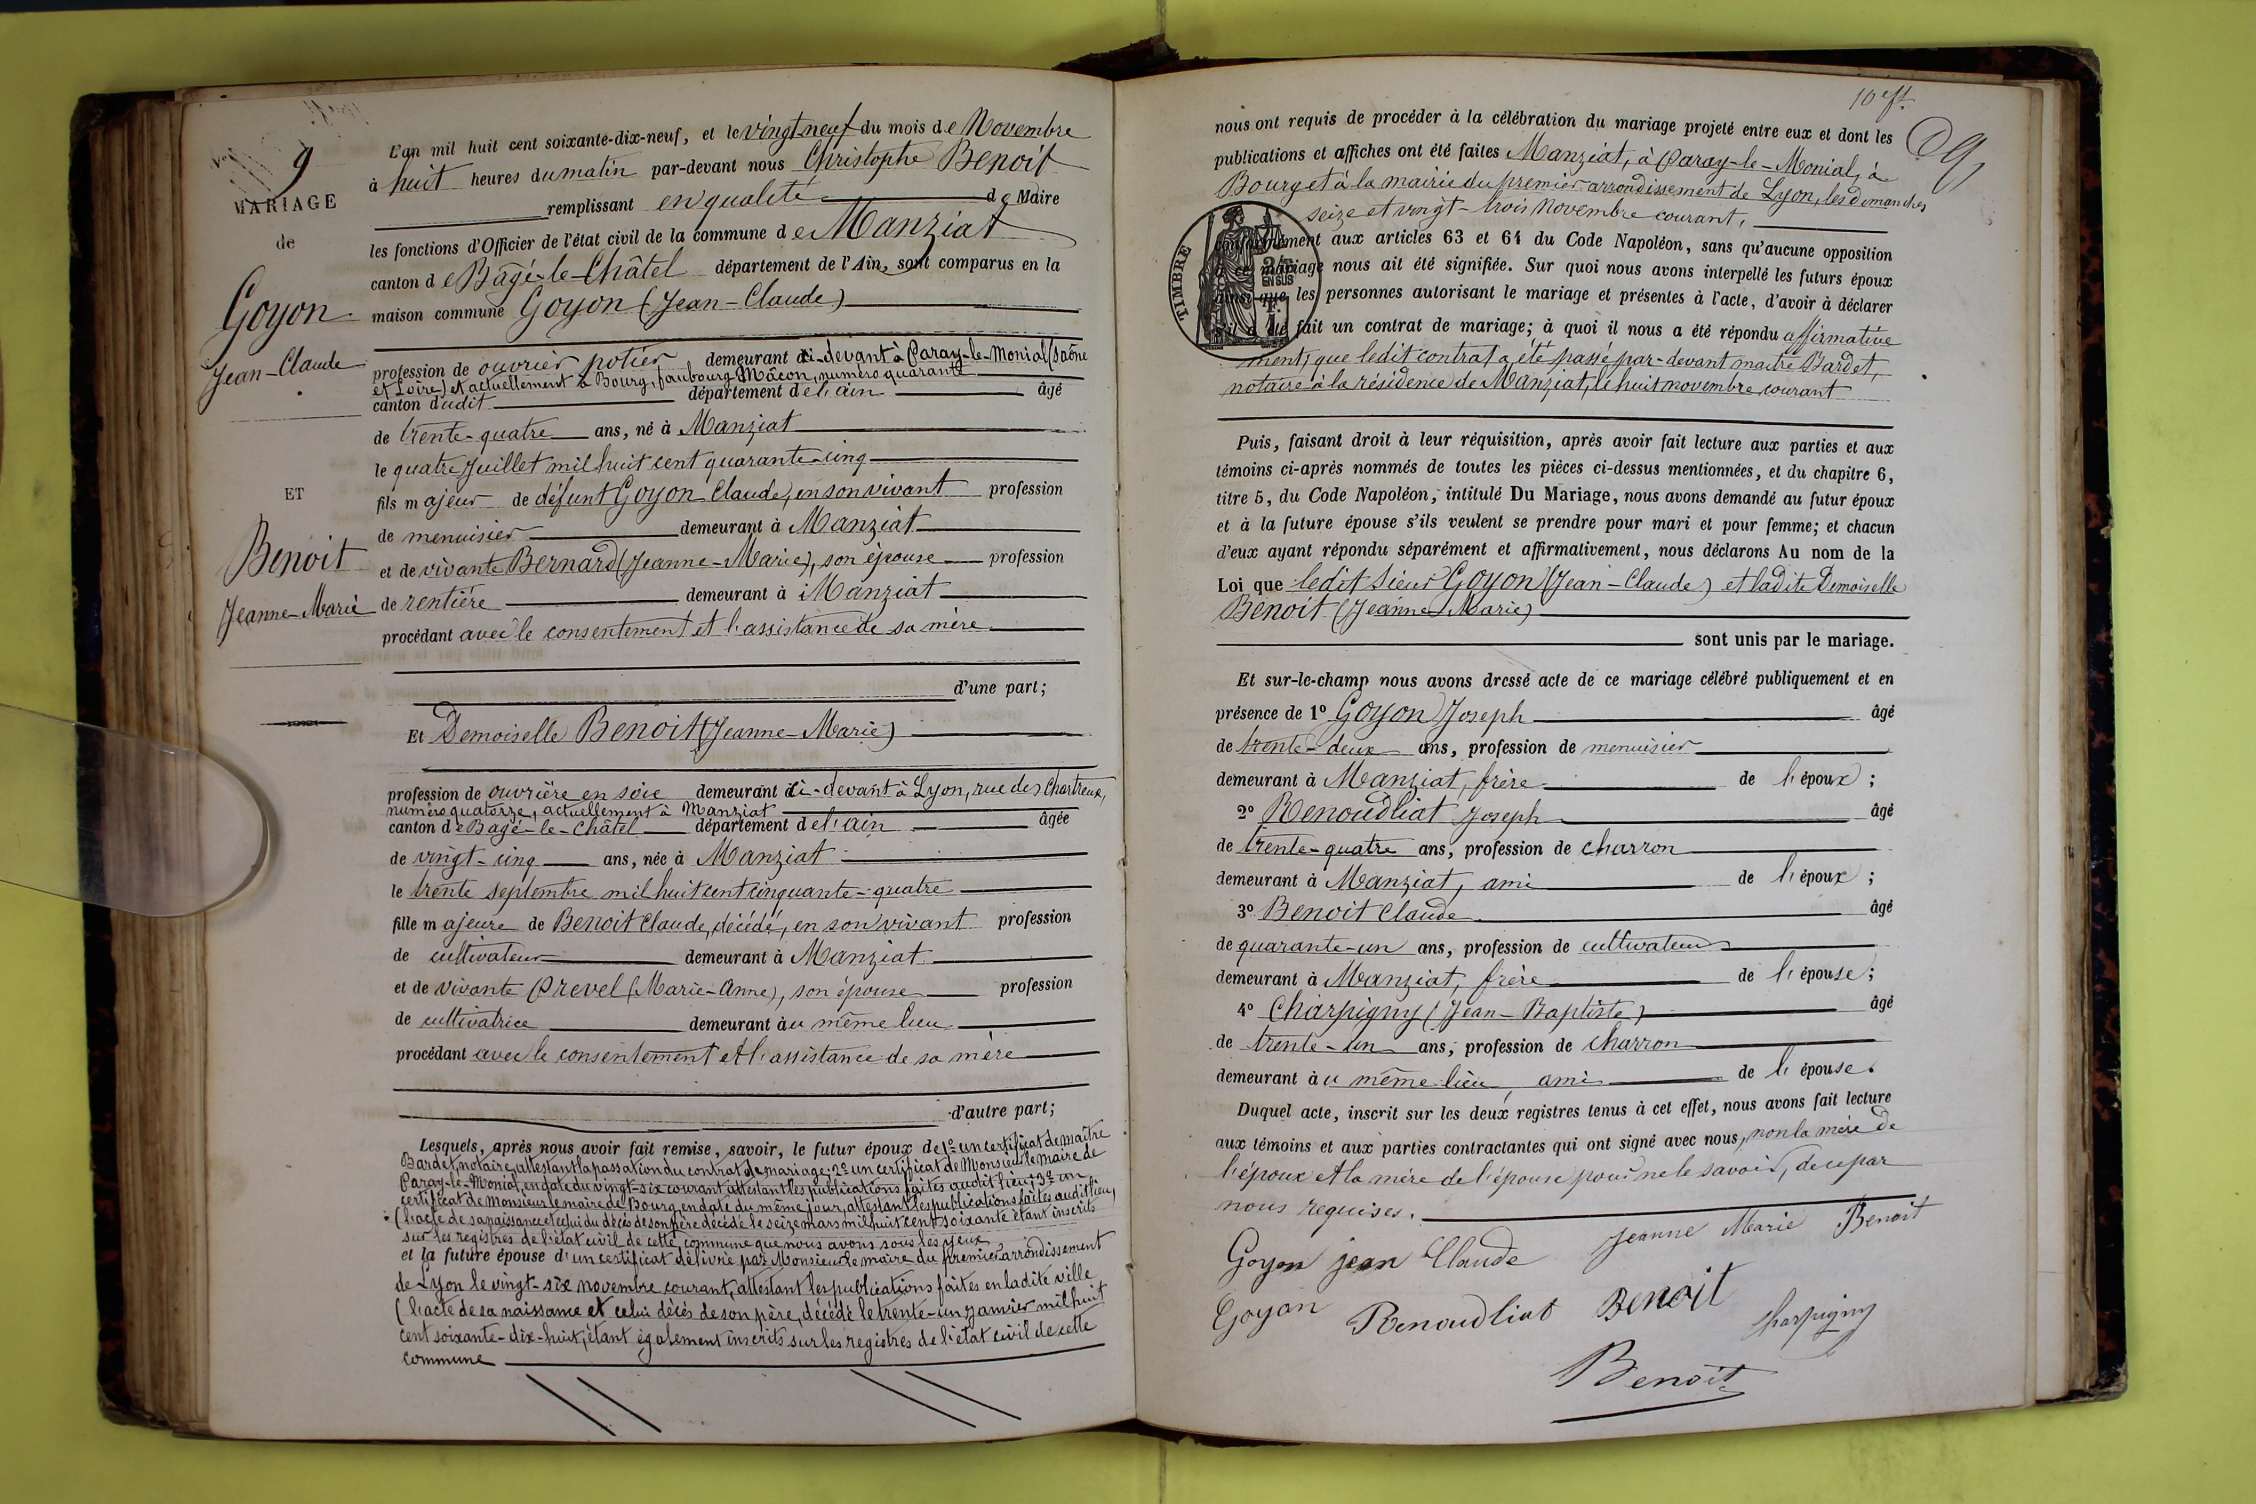 9
MARIAGE
de
Goyon
Jean-Claude
ET
Benoit
Jeanne-Marie
L'an mil huit cent soixante-dix-neuf, et le vingt neuf du mois de Novembre
à huit heures du matin par-devant nous Christophe Benoit
remplissant en qualité de Maire
les fonctions d'Officier de l'état civil de la commune de Manziat
canton de Bâgé-le-Châtel département de l'Ain, sont comparus en la
maison commune Goyon (Jean-Claude)
profession de ouvrier potier demeurant ci-devant à Paray-le-Monial (Saône
et Loire) et actuellement à Bourg, faubourg Mâcon, numéro quarante
canton dudit département de l'ain âgé
de trente-quatre ans, né à Manziat
le quatre Juillet mil huit cent quarante-cinq
fils majeur de défunt Goyon Claude, en son vivant profession
de menuisier demeurant à Manziat
et de vivante Bernard (Jeanne-Marie), son épouse profession
de rentière demeurant à Manziat
procédant avec le consentement et l'assistance de sa mère
d'une part;
Et Demoiselle Benoit (Jeanne-Marie)
profession de ouvrière en soie demeurant ci-devant à Lyon, rue des Chartreux,
numéro quatorze, actuellement à Manziat
canton de Bagé-le-Châtel département de l'ain âgée
de vingt-cinq ans, née à Manziat
le trente septembre mil huit cent cinquante-quatre
fille majeure de Benoit Claude, décédé, en son vivant profession
de cultivateur demeurant à Manziat
et de vivante Prevel (Marie-Anne), son épouse profession
de cultivatrice demeurant au même lieu
procédant avec le consentement et l'assistance de sa mère
d'autre part;
Lesquels, après nous avoir fait remise, savoir, le futur époux de 1º un certificat de maître
Bardet, notaire, attestant la passation du contrat de mariage; 2º un certificat de Monsieur le maire de
Paray-le-Monial, en date du vingt-six courant attestant les publications faites audit lieu; 3º un
certificat de Monsieur le maire de Bourg, en date du même jour, attestant les publications faites audit lieu,
(l'acte de sa naissance et celui du décès de son père décédé le seize mars mil huit cent soixante étant inscrits
sur les registres de l'état civil de cette commune que nous avons sous les yeux
et la future épouse d'un certificat délivré par Monsieur le maire du premier arrondissement
de Lyon le vingt-six novembre courant, attestant les publications faites en ladite ville
(l'acte de sa naissance et celui décès de son père, décédé le trente-un janvier mil huit
cent soixante-dix-huit, étant également inscrits sur les registres de l'état civil de cette
commune
nous ont requis de procéder à la célébration du mariage projeté entre eux et dont les
publications et affiches ont été faites Manziat, à Paray-le-Monial, à
Bourg et à la mairie du premier arrondissement de Lyon, les dimanches
seize et vingt-trois Novembre courant,
conformément aux articles 63 et 64 du Code Napoléon, sans qu'aucune opposition
à ce mariage nous ait été signifiée. Sur quoi nous avons interpellé les futurs époux
ainsi que les personnes autorisant le mariage et présentes à l'acte, d'avoir à déclarer
s'il a été fait un contrat de mariage; à quoi il nous a été répondu affirmative
ment, que ledit contrat a été passé par-devant maître Bardet,
notaire à la résidence de Manziat, le huit novembre courant
TIMBRE
2/10
EN SUS
Puis, faisant droit à leur réquisition, après avoir fait lecture aux parties et aux
témoins ci-après nommés de toutes les pièces ci-dessus mentionnées, et du chapitre 6,
titre 5, du Code Napoléon, intitulé Du Mariage, nous avons demandé au futur époux
et à la future épouse s'ils veulent se prendre pour mari et pour femme; et chacun
d'eux ayant répondu séparément et affirmativement, nous déclarons Au nom de la
Loi que ledit Sieur Goyon (Jean-Claude) et ladite Demoiselle
Benoit (Jeanne-Marie)
sont unis par le mariage.
Et sur-le-champ nous avons dressé acte de ce mariage célébré publiquement et en
présence de 1º Goyon Joseph âgé
de trente-deux ans, profession de menuisier
demeurant à Manziat, frère de l'époux;
2º Renoudliat Joseph âgé
de trente-quatre ans, profession de charron
demeurant à Manziat, ami de l'époux;
3º Benoit Claude âgé
de quarante-un ans, profession de cultivateur
demeurant à Manziat, frère de l'épouse;
4º Charpigny (Jean-Baptiste) âgé
de trente-un ans, profession de charron
demeurant au même lieu, ami de l'épouse.
Duquel acte, inscrit sur les deux registres tenus à cet effet, nous avons fait lecture
aux témoins et aux parties contractantes qui ont signé avec nous, non la mère de
l'époux et la mère de l'épouse pour ne le savoir, de ce par
nous requises.
Goyon jean Claude Jeanne Marie Benoit
Goyon Renoudliat Benoit Charpigny
Benoit